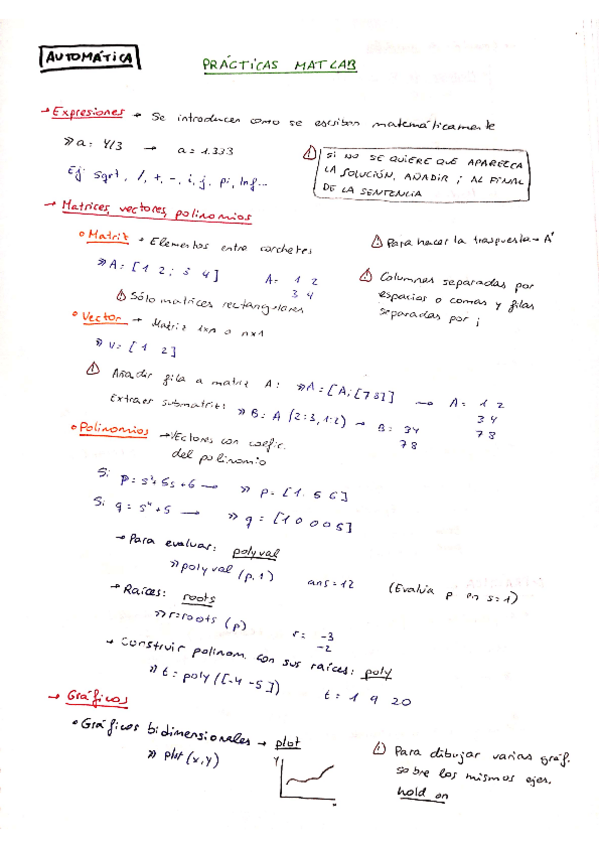 AUTOMÁTICA
PRÁCTICAS MATLAB
→ Expresiones → Se introducen como se escriben matemáticamente
>> a = 4/3 → a = 1.333
Ej: sqrt, /, +, -, i, j, pi, Inf...
⚠ SI NO SE QUIERE QUE APAREZCA
LA SOLUCIÓN, AÑADIR ; AL FINAL
DE LA SENTENCIA
→ Matrices, vectores, polinomios
• Matriz → Elementos entre corchetes
>> A = [1 2; 3 4]   A = 1 2
3 4
⚠ Sólo matrices rectangulares
⚠ Para hacer la traspuesta → A'
⚠ Columnas separadas por
espacios o comas y filas
separadas por ;
• Vector → Matriz 1xn o nx1
>> v = [1 2]
⚠ Añadir fila a matriz A: >> A = [A; [7 8]] → A = 1 2
3 4
7 8
Extraer submatriz: >> B = A (2:3, 1:2) → B = 3 4
7 8
• Polinomios → Vectores con coefic.
del polinomio
Si p = s²+5s+6 → >> p = [1 5 6]
Si q = s⁴+5 → >> q = [1 0 0 0 5]
→ Para evaluar: polyval
>> polyval (p, 1)   ans = 12   (Evalúa p en s=1)
→ Raíces: roots
>> r = roots (p)   r = -3
-2
→ Construir polinom. con sus raíces: poly
>> t = poly ([-4 -5])   t = 1 9 20
→ Gráficos
• Gráficos bidimensionales → plot
>> plot (x, y)
Y
X
⚠ Para dibujar varias gráf.
sobre los mismos ejes,
hold on